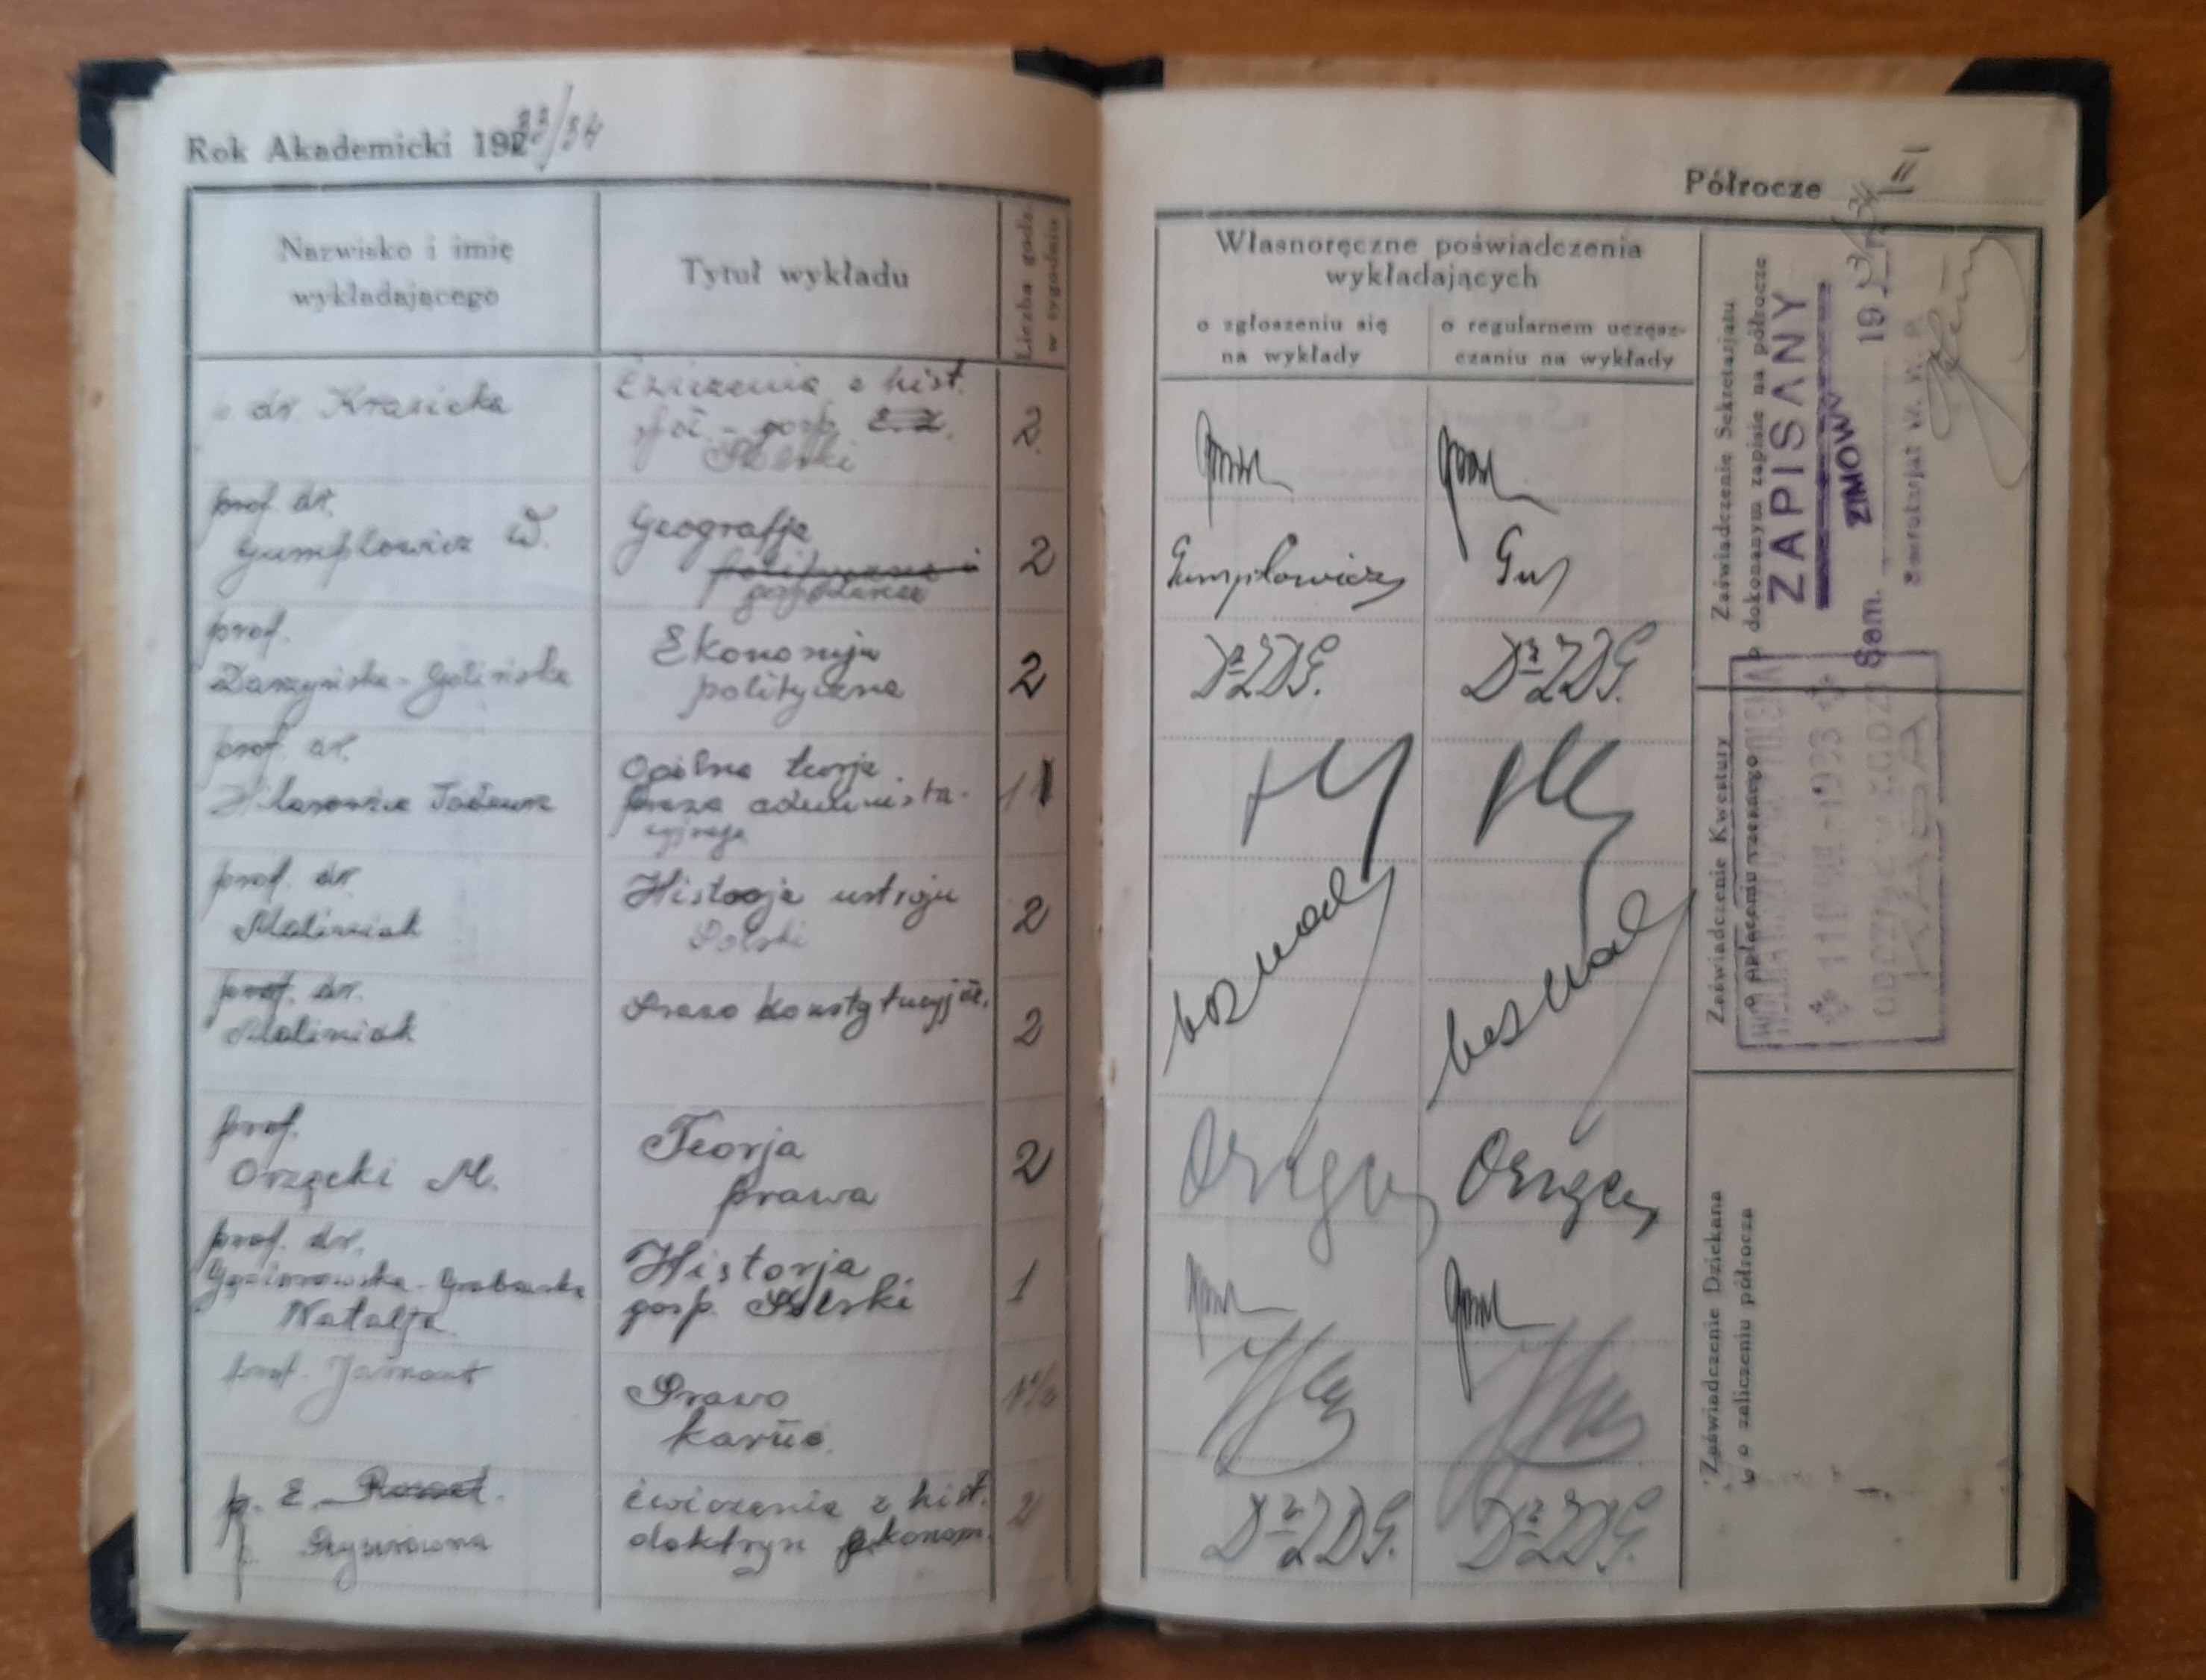 Rok Akademicki 1933/34
Nazwisko i imię
wykładającego
Tytuł wykładu
Liczba godz.
w tygodniu
dr. Krasicka
Ćwiczenia z hist.
gosp.
Polski
2
prof. dr.
Gumplowicz W.
Geografja
polityczna i
gospodarcza
2
prof.
Daszyńska-Golińska
Ekonomja
polityczna
2
prof. dr.
Hilarowicz Tadeusz
Ogólna teorja
prawa administra-
cyjnego
1
prof. dr.
Maliniak
Historja ustroju
Polski
2
prof. dr.
Maliniak
Prawo konstytucyjne.
2
prof.
Orzęcki M.
Teorja
prawa
2
prof. dr.
Gąsiorowska-Grabowska
Natalja
Historja
gosp. Polski
1
prof.
Prawo
karne
p. E.
Ryserówna
ćwiczenia z hist.
doktryn ekonom.
2
Półrocze II
Własnoręczne poświadczenia
wykładających
o zgłoszeniu się
na wykłady
o regularnem uczęsz-
czaniu na wykłady
Gumplowicz
Gu
Dr ZDG.
Dr ZDG.
Dr ZDG.
Dr ZDG.
Zaświadczenie Sekretarjatu
o dokonanym zapisie na półrocze
ZAPISANY
ZIMOWY
Sem. 19 33/34 r.
Sekretarjat W. W. P.
Zaświadczenie Kwestury
o opłaceniu czesnego
WOLNA WSZECHNICA POLSKA
1933
ODDZ. W ŁODZI
KASA
Zaświadczenie Dziekana
o zaliczeniu półrocza